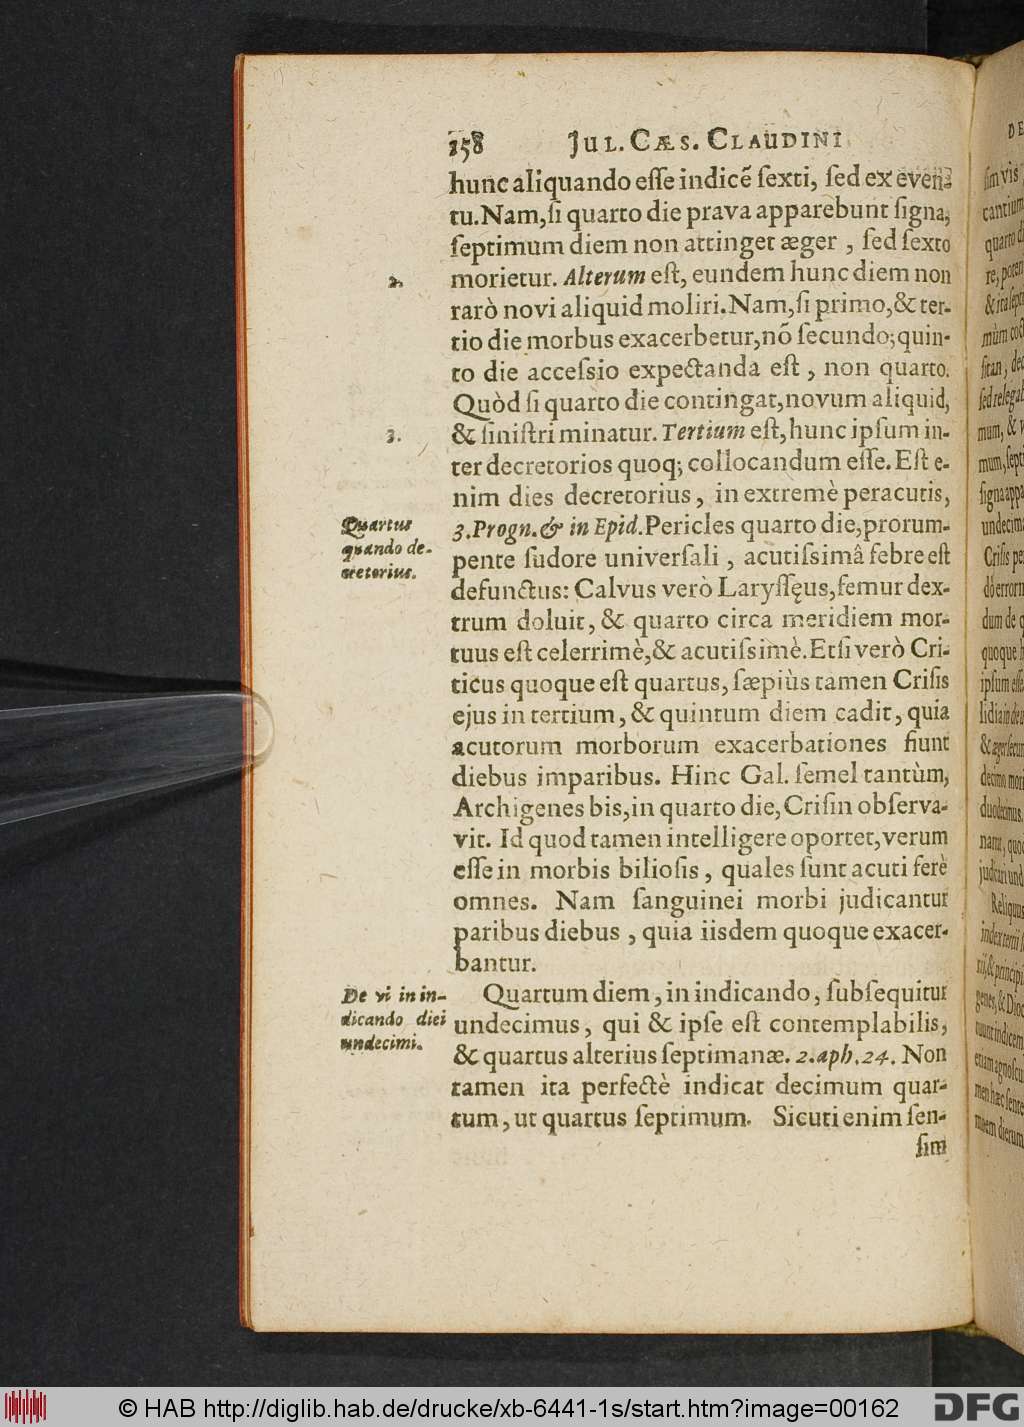 158 JUL. CÆS. CLAUDINI
hunc aliquando eſſe indicē ſexti, ſed ex even-
tu. Nam, ſi quarto die prava apparebunt ſigna,
ſeptimum diem non attinget æger, ſed ſexto
2.
morietur. Alterum eſt, eundem hunc diem non
rarò novi aliquid moliri. Nam, ſi primo, & ter-
tio die morbus exacerbetur, nō ſecundo; quin-
to die acceſsio expectanda eſt, non quarto.
Quòd ſi quarto die contingat, novum aliquid,
3.
& ſiniſtri minatur. Tertium eſt, hunc ipſum in-
ter decretorios quoq; collocandum eſſe. Eſt e-
nim dies decretorius, in extremè peracutis,
Quartus
quando de-
cretorius.
3. Progn. & in Epid. Pericles quarto die, prorum-
pente ſudore univerſali, acutiſsimâ febre eſt
defunctus: Calvus verò Laryſſęus, femur dex-
trum doluit, & quarto circa meridiem mor-
tuus eſt celerrimè, & acutiſsimè. Etſi verò Cri-
ticus quoque eſt quartus, ſæpiùs tamen Criſis
ejus in tertium, & quintum diem cadit, quia
acutorum morborum exacerbationes fiunt
diebus imparibus. Hinc Gal. ſemel tantùm,
Archigenes bis, in quarto die, Criſin obſerva-
vit. Id quod tamen intelligere oportet, verum
eſſe in morbis bilioſis, quales ſunt acuti ferè
omnes. Nam ſanguinei morbi judicantur
paribus diebus, quia iisdem quoque exacer-
bantur.
De vi in in-
dicando diei
undecimi.
Quartum diem, in indicando, ſubſequitur
undecimus, qui & ipſe eſt contemplabilis,
& quartus alterius ſeptimanæ. 2. aph. 24. Non
tamen ita perfectè indicat decimum quar-
tum, ut quartus ſeptimum. Sicuti enim ſen-
ſim
© HAB http://diglib.hab.de/drucke/xb-6441-1s/start.htm?image=00162
DFG